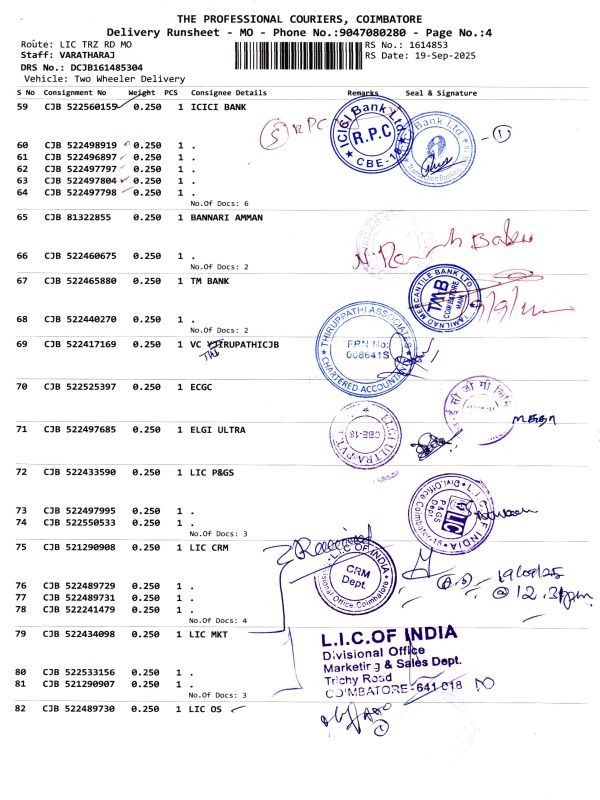 THE PROFESSIONAL COURIERS, COIMBATORE
Delivery Runsheet - MO - Phone No.:9047080280 - Page No.:4
Route: LIC TRZ RD MO
RS No.: 1614853
Staff: VARATHARAJ
RS Date: 19-Sep-2025
DRS No.: DCJB161485304
Vehicle: Two Wheeler Delivery
S No Consignment No Weight PCS Consignee Details Remarks Seal & Signature
59 CJB 522560155 0.250 1 ICICI BANK
5 RPC
ICICI Bank Ltd. R.P.C CBE-18
Bank Ltd
1
60 CJB 522498919 0.250 1 .
61 CJB 522496897 0.250 1 .
62 CJB 522497797 0.250 1 .
63 CJB 522497804 0.250 1 .
64 CJB 522497798 0.250 1 .
No.Of Docs: 6
65 CJB 81322855 0.250 1 BANNARI AMMAN
N. Ramesh Babu
66 CJB 522460675 0.250 1 .
No.Of Docs: 2
67 CJB 522465880 0.250 1 TM BANK
TAMILNAD MERCANTILE BANK LTD. TMB
68 CJB 522440270 0.250 1 .
No.Of Docs: 2
69 CJB 522417169 0.250 1 VC TIRUPATHICJB
THIRUPPATHI ASSOCIATES FRN No: 008641S CHARTERED ACCOUNTANTS
70 CJB 522525397 0.250 1 ECGC
71 CJB 522497685 0.250 1 ELGI ULTRA
ELGI ULTRA PVT CBE-18
72 CJB 522433590 0.250 1 LIC P&GS
L.I.C. OF INDIA Div.Office Coimbatore-18 P&GS Dept LIC
73 CJB 522497995 0.250 1 .
74 CJB 522550533 0.250 1 .
No.Of Docs: 3
75 CJB 521290908 0.250 1 LIC CRM
Received
L.I.C OF INDIA CRM Dept. Divisional Office, Coimbatore
19/09/25
@ 12.31pm
76 CJB 522489729 0.250 1 .
77 CJB 522489731 0.250 1 .
78 CJB 522241479 0.250 1 .
No.Of Docs: 4
79 CJB 522434098 0.250 1 LIC MKT
L.I.C.OF INDIA
Divisional Office
Marketing & Sales Dept.
Trichy Road
COIMBATORE-641 018
80 CJB 522533156 0.250 1 .
81 CJB 521290907 0.250 1 .
No.Of Docs: 3
82 CJB 522489730 0.250 1 LIC OS
1